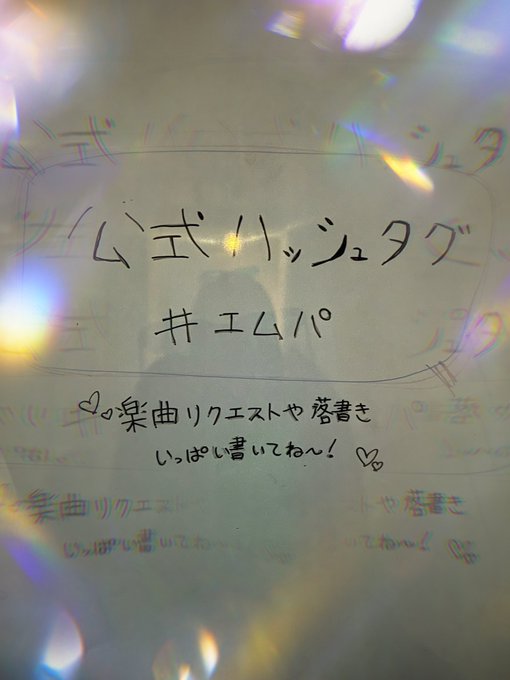 公式ハッシュタグ
#エムパ
楽曲リクエストや落書き
いっぱい書いてね〜!